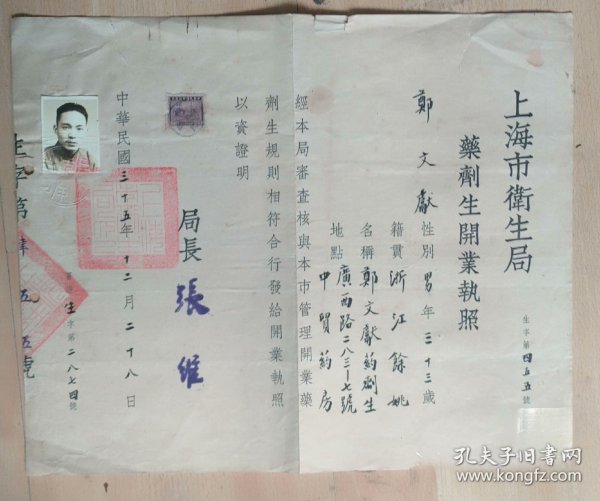 上海市衛生局
藥劑生開業執照
生字第四五五號
鄭文獻 性別男年三十三歲
籍貫浙江餘姚
名稱鄭文獻药劑生
地點廣西路二八三一七號
中貿药房
經本局審查核與本市管理開業藥
劑生規則相符合行發給開業執照
以資證明
局長 張維
中華民國三十五年十二月二十八日
生字第二八七四號
生字第肆五五號
孔夫子旧书网
www.kongfz.com